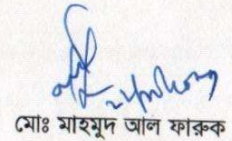 মোঃ মাহমুদ আল ফারুক